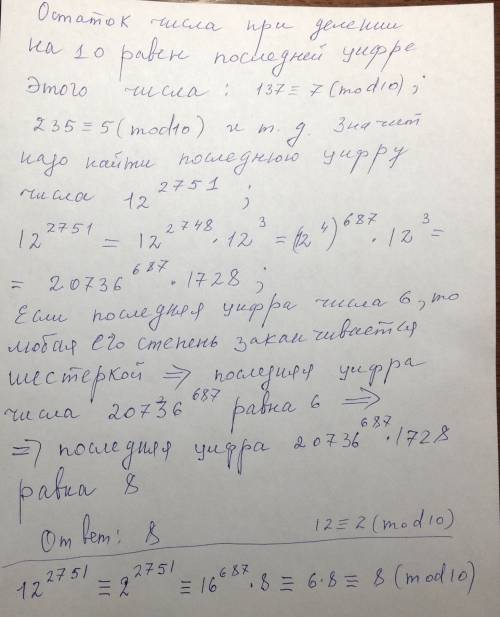 Остаток числа при делении
на 10 равен последней цифре
этого числа: 137 ≡ 7 (mod 10);
235 ≡ 5 (mod 10) и т. д. Значит
надо найти последнюю цифру
числа 12^2751;
12^2751 = 12^2748 · 12^3 = (12^4)^687 · 12^3 =
= 20736^687 · 1728;
Если последняя цифра числа 6, то
любая его степень заканчивается
шестеркой => последняя цифра
числа 20736^687 равна 6 =>
=> последняя цифра 20736^687 · 1728
равна 8
Ответ: 8
12 ≡ 2 (mod 10)
12^2751 ≡ 2^2751 ≡ 16^687 · 8 ≡ 6 · 8 ≡ 8 (mod 10)